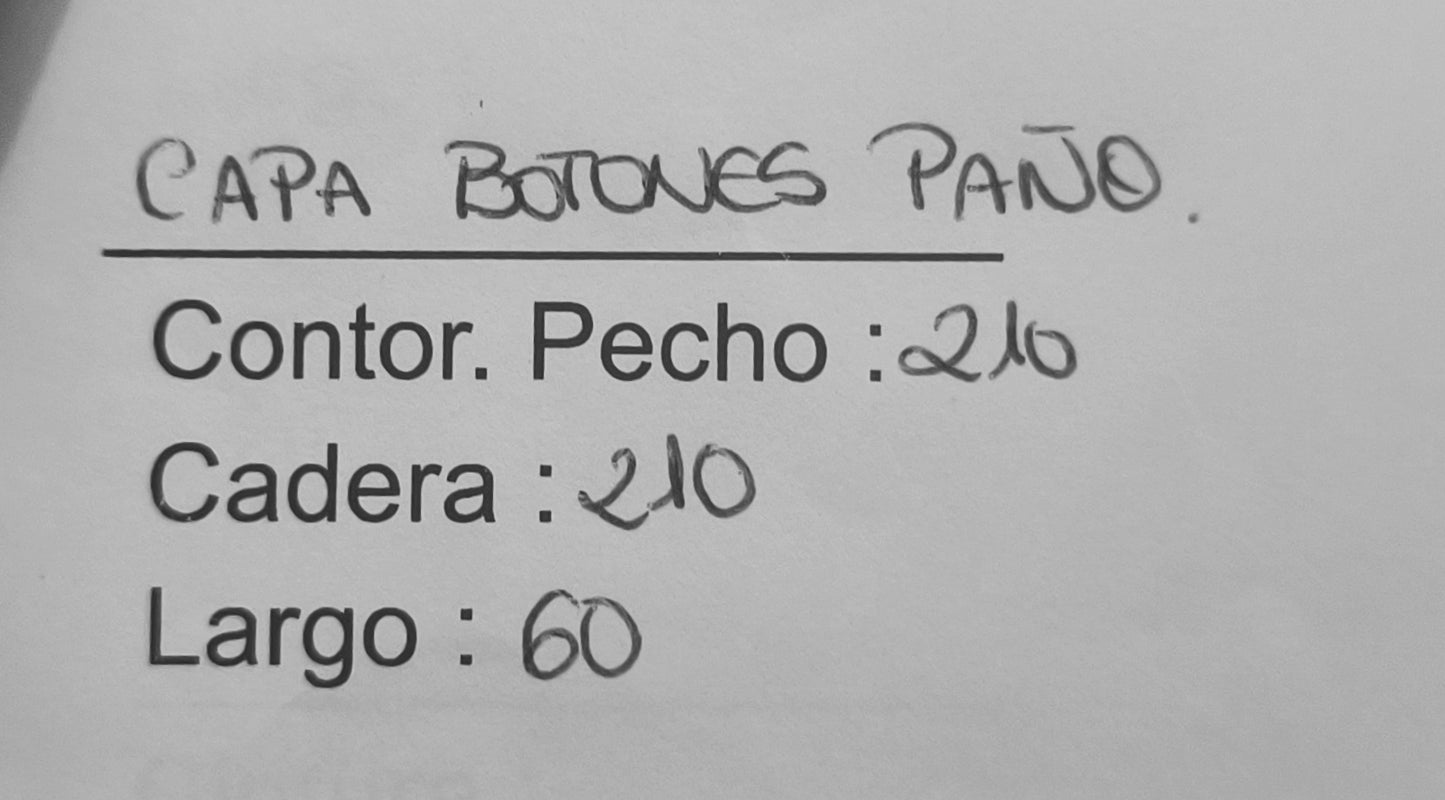 CAPA BOTONES PAÑO.
Contor. Pecho : 210
Cadera : 210
Largo : 60